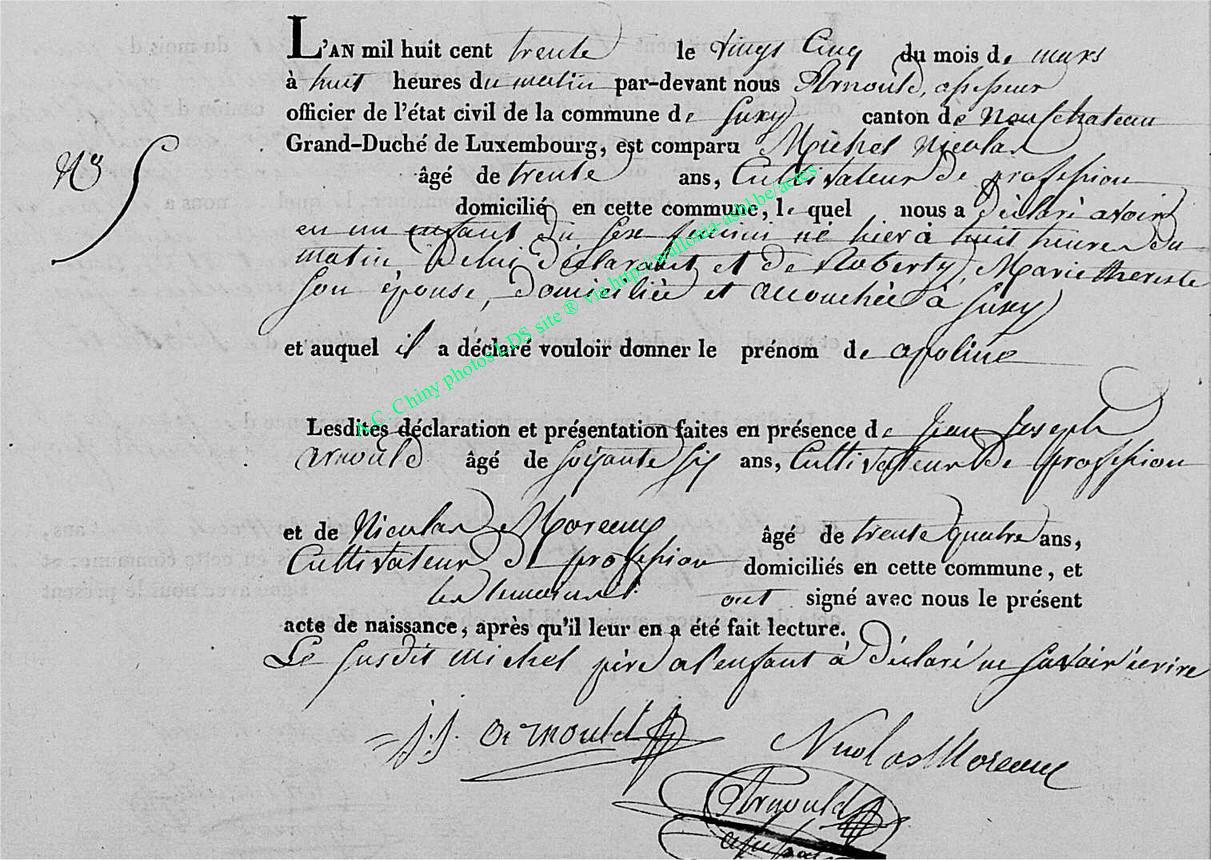 L'AN mil huit cent trente le vingt Cinq du mois de mars
à huit heures du matin par-devant nous Arnould, assesseur
officier de l'état civil de la commune de Suxy canton de Neufchateau
Grand-Duché de Luxembourg, est comparu Michel Nicolas
N° 5
âgé de trente ans, Cultivateur de profession
domicilié en cette commune, le quel nous a déclaré avoir
eu un enfant du sexe feminin né hier à huit heures du
matin de lui déclarant et de Roberty, Marie therese
son épouse, domiciliée et accouchée à Suxy
et auquel il a déclaré vouloir donner le prénom de apoline
Lesdites déclaration et présentation faites en présence de Jean Joseph
arnould âgé de soixante six ans, Cultivateur de profession
et de Nicolas Moreaux âgé de trente quatre ans,
Cultivateur de profession domiciliés en cette commune, et
les temoins ont signé avec nous le présent
acte de naissance, après qu'il leur en a été fait lecture.
Le susdit michel père de l'enfant à déclaré ne savoir écrire
j.j. arnould Nicolas Moreaux
Arnould
A.C. Chiny photos LDS site ® via http://wallonia-asbl.be/actes